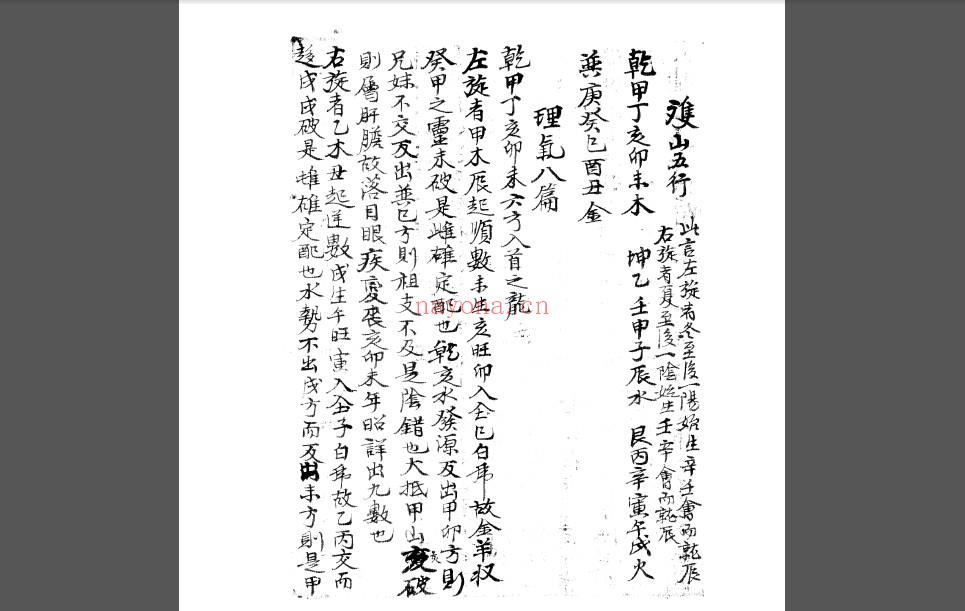 雙山五行
此言左旋者冬至後一陽始生辛壬會而聚辰
右旋者夏至後一陰始生壬辛會而聚辰
乾甲丁亥卯未木 坤乙壬申子辰水 艮丙辛寅午戌火
巽庚癸巳酉丑金
理氣八篇
乾甲丁亥卯未六方入首之龍
左旋者甲木辰起順數未生亥旺卯入 巳白 故金羊收
癸甲之靈未破是雌雄定配也乾亥水發源反出甲卯方則
兄妹不交反出巽巳方則祖支不及是陰錯也大抵甲山 破
則屬肝膽故落目眼疾憂喪亥卯未年昭詳出九數也
右旋者乙木丑起逆數戌生午旺寅入 子白 故乙丙交而
趍戌戌破是雌雄定配也水勢不出戌方而反出未方則是甲
nayona.cn